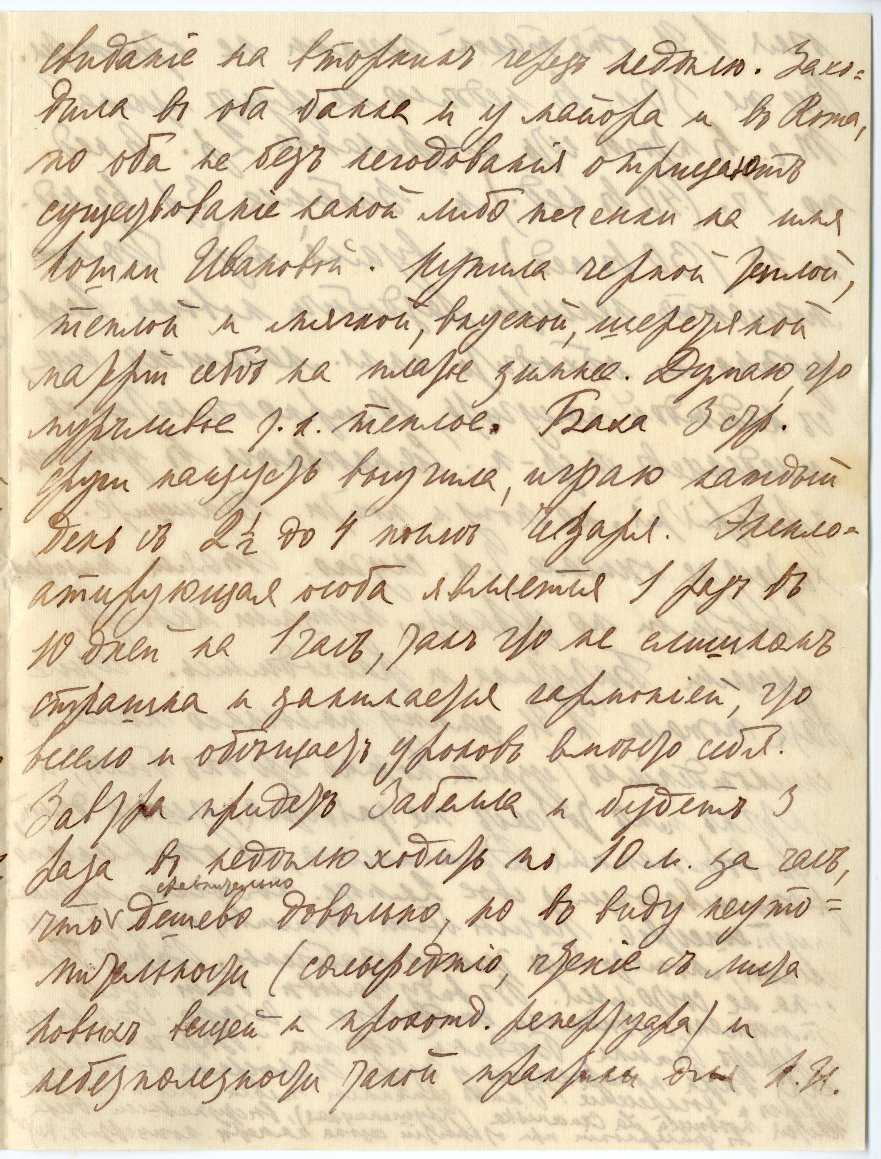 свиданіе на вторникъ черезъ недѣлю. Захо-
дила въ оба банка и у майора и въ Кома,
но оба не безъ негодованія отрицаютъ
существованіе какой либо печенки на имя
кошки Ивановой. Купила черной милой,
теплой и мягкой, вкусной, шерстяной
матеріи себѣ на платье зимнее. Думаю, что
мурчливое т. к. теплое. Баха 3 стр.
фуги наизусть выучила, играю каждый
день съ 2½ до 4 послѣ Чезаря. Эксплο-
атирующая особа является 1 разъ въ
10 дней на 1 часъ, такъ что не слишкомъ
страшна и занимается гармоніей, что
весело и обѣщаетъ уроковъ вмѣсто себя.
Завтра придетъ Забелла и будетъ 3
раза въ недѣлю ходить по 10 м. за часъ,
что сравнительно дешево довольно, но въ виду неуто-
мительности (сольфеджіо, чтеніе съ листа
новыхъ вещей и прохожд. репертуара) и
небезполезности такой практики для